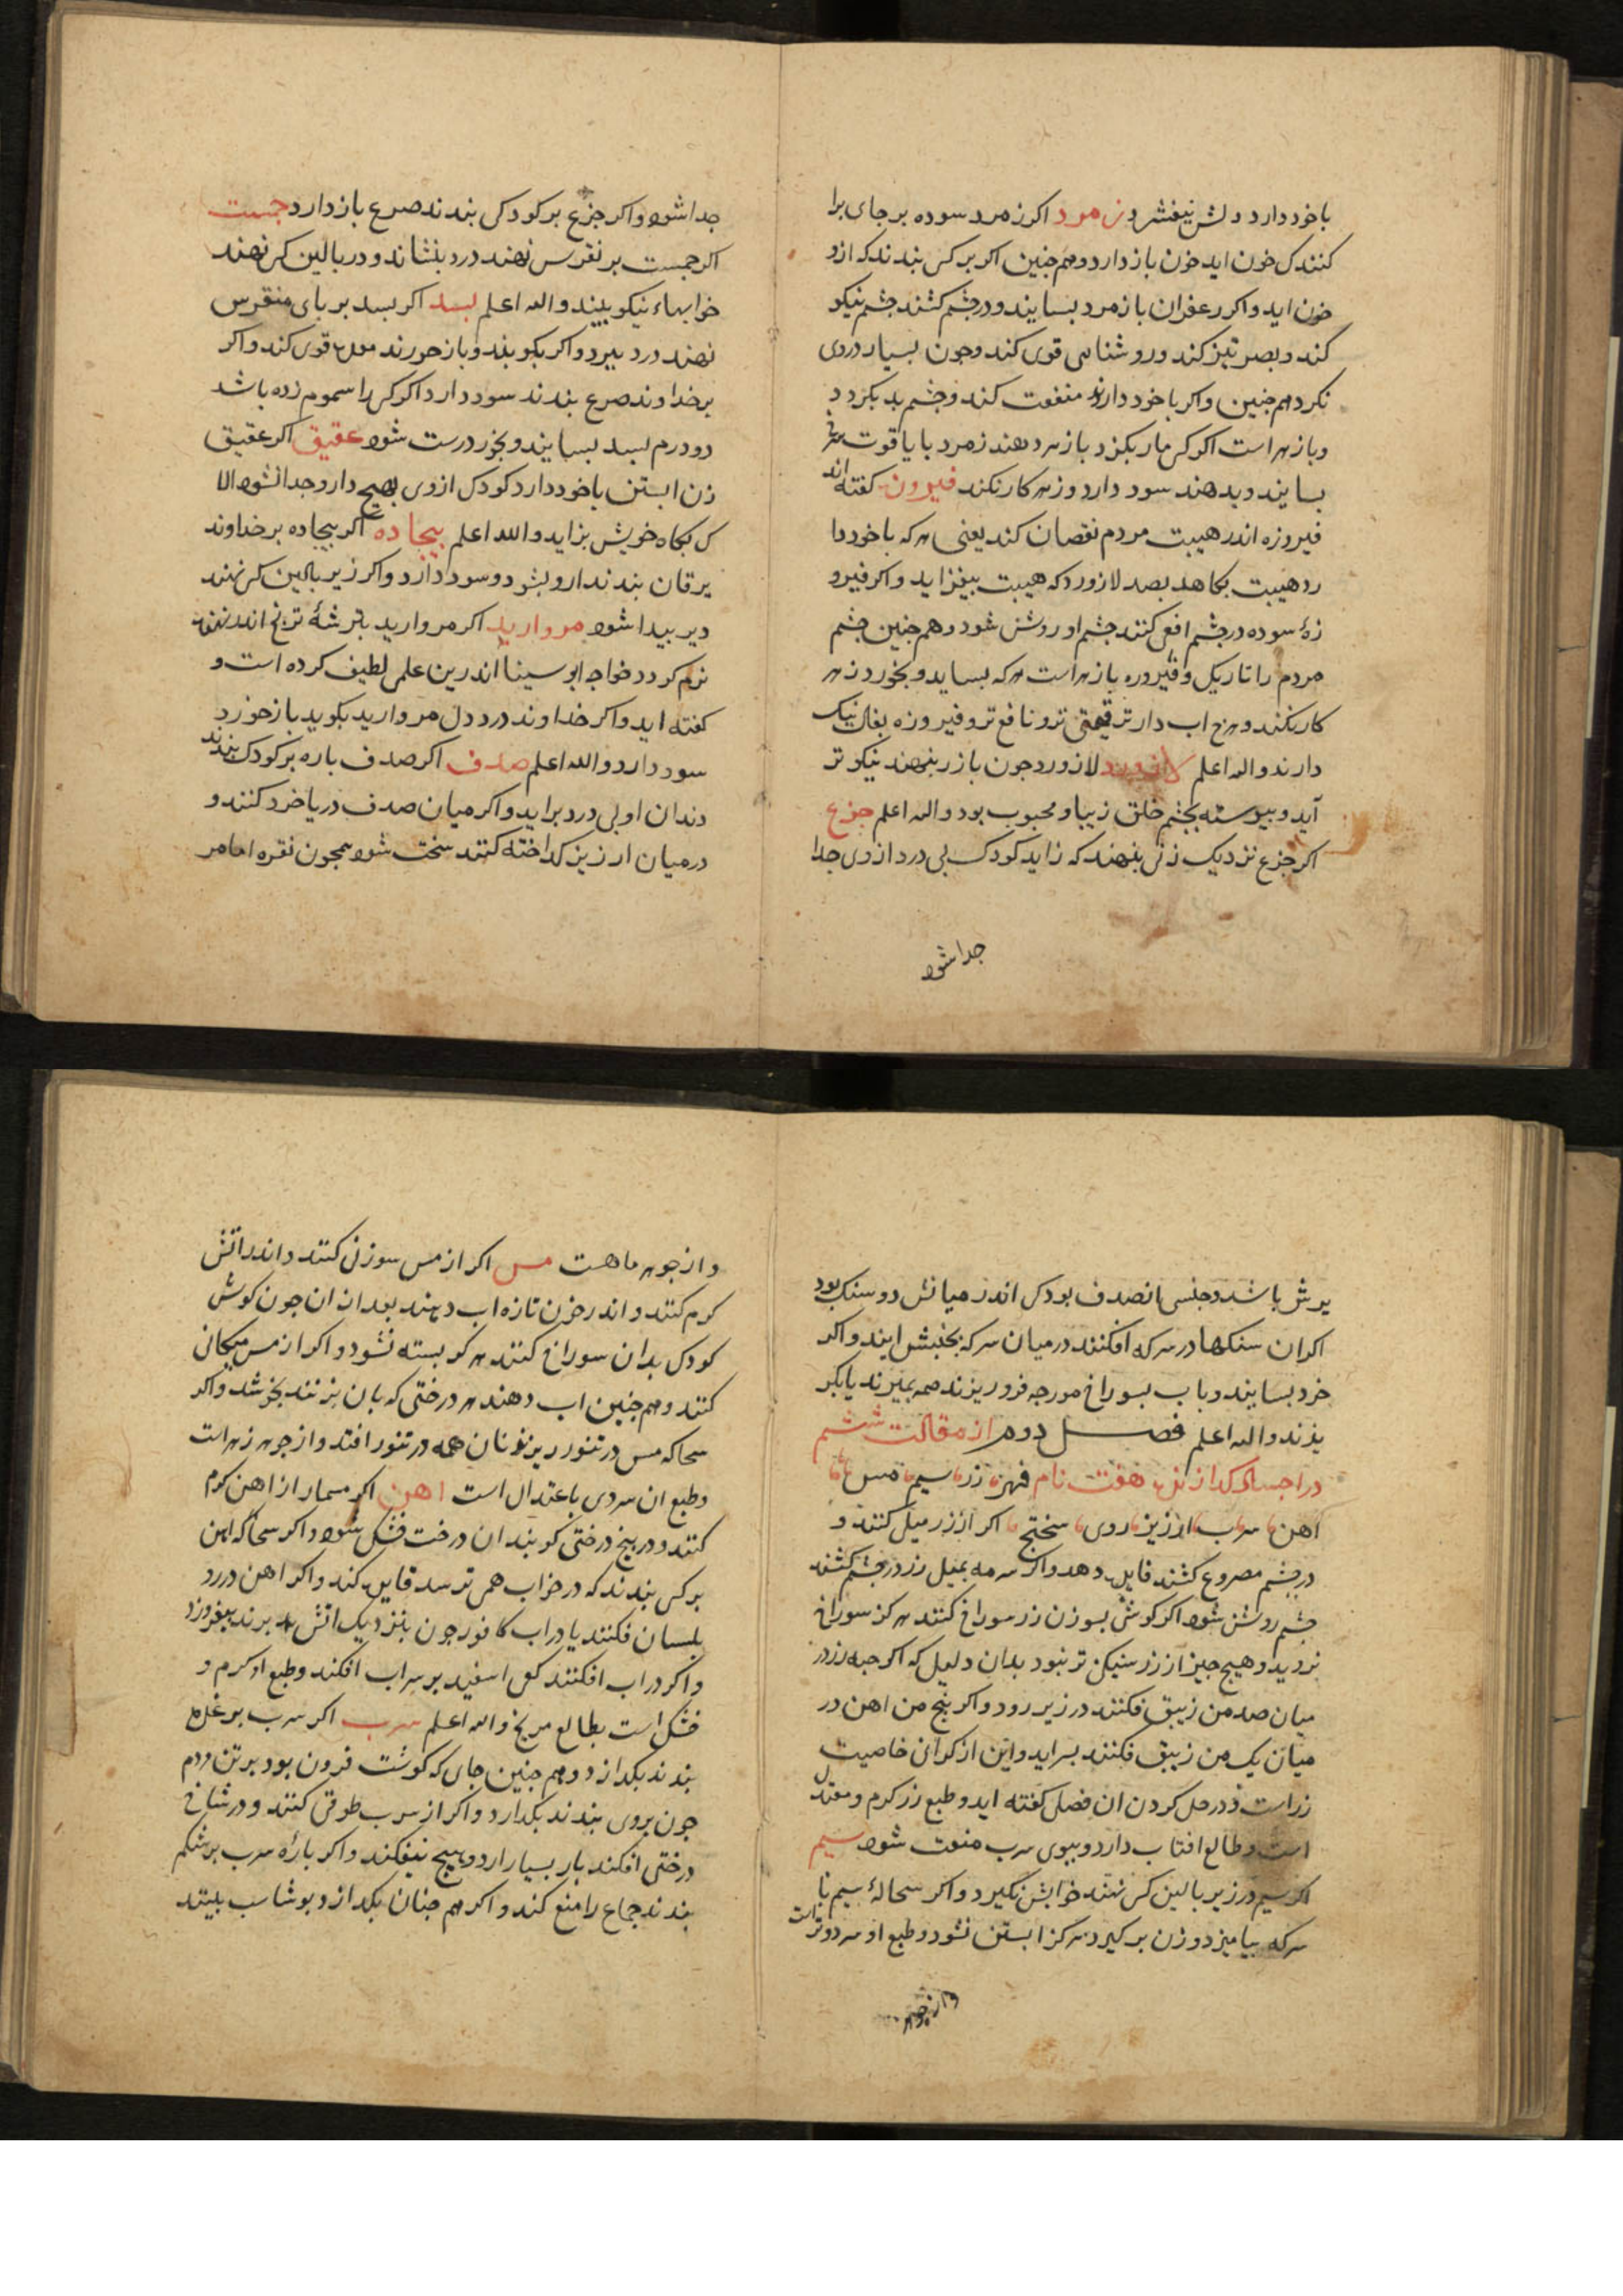 باخود دارد دلش نیفشرد زمرد اکر زمرد سوده برجای برا
کنند کی خون اید خون باز دارد وهم جنین اکر برکس بندند که ازو
خون اید واکر زعفران بازمرد بسایند ودر جشم کشند جشم نیکو
کند وبصر تیز کند وروشنایی قوی کند وجون بسیار دروی
نکرد هم جنین واکر باخود دارند منفعت کند وجشم بد بکرد د
وبازهر است اکر کسی مار بکزد بازهر دهند زمرد بایاقوت سرخ
بسایند وبدهند سود دارد وزهر کار نکند فیروزه کفته اند
فیروزه اندر هیبت مردم نقصان کند یعنی هرکه باخود دا
رد هیبت بکاهد بصد لازورد که هیبت بیفزاید واکر فیرو
زهٔ سوده در جشم افعی کنند جشم او روشن شود وهم جنین جشم
مردم را تاریک وفیروزه بازهر است هرکه بساید وبخورد زهر
کار نکند وهرج اب دارتر قیمتی تر ونافع تر وفیروزه بفال نیک
دارند والله اعلم لازورد لازورد جون بازر بنهند نیکوتر
آید وبیوسته بجشم خلق زیبا ومحبوب بود والله اعلم جزع
اکر جزع نزدیک زنی بنهند که زاید کودک بی درد ازوی جدا
جدا شود
جدا شود واکر جزع برکودکی بندند صرع باز دارد جمست
اکر جمست برنقرس نهند درد بنشاند ودر بالین کسی نهند
خوابهاء نیکو بیند والله اعلم بسد اکر بسد بربای منقرس
نهند درد ببرد واکر بکوبند وبازخورند معده قوی کند واکر
برخداوند صرع بندند سود دارد اکر کسی را سموم زده باشد
دو درم بسد بسایند وبخورد درست شود عقیق اکر عقیق
زن ابستن باخود دارد کودک ازوی بهیج دارو جدا نشود الا
کی بکاه خویش بزاید والله اعلم بیجاده اکر بیجاده برخداوند
یرقان بندند ازو بشود وسود دارد واکر زیر بالین کسی نهند
دیر بیدا شود مروارید اکر مروارید بترشهٔ ترنج اندر نهند
نرم کردد خواجه ابوسینا اندرین علمی لطیف کرده است و
کفته اید واکر خداوند درد دل مروارید بکوبد بازخورد
سود دارد والله اعلم صدف اکر صدف باره برکودک بندند
دندان او بی درد براید واکر میان صدف دریا خرد کنند و
درمیان ارزیز کداخته کنند سخت شود همجون نقره اما مر
یرش باشد وجنسی از صدف بود کی اندر میانش دو سنک بود
اکر ان سنکها در سرکه افکنند درمیان سرکه بجنبش ایند واکر
خرد بسایند وباب بسوراخ مورجه فرو ریزند همه بمیرند یابکر
یزند والله اعلم فصل دوم از مقالت ششم
در اجساد کدازنده هفت نام فهرست زر سیم مس
اهن سرب ارزیز روی سختج اکر از زر میل کنند و
درجشم مصروع کشند فایده دهد واکر سرمه بمیل زر درجشم کشند
جشم روشن شود اکر کوش بسوزن زر سوراخ کنند هرکز سوراخ
نردید وهیج جیز از زر سنیکن تر نبود بدان دلیل که اکر حبه زر در
میان صد من زیبق فکنند درزیر رود واکر بنج من اهن در
میان یک من زیبق فکنند بسر اید واین از کرانی خاصیت
زر است ودر حل کردن ان فصلی کفته اید وطبع زر کرم ومعتدل
است وطالع افتاب دارد وببوی سرب منعت شود سیم
اکر سیم در زیر بالین کسی نهند خوابش نکیرد واکر سحالهٔ سیم با
سرکه بیامیزد وزن برکیرد هرکز ابستن نشود وطبع او سرد وتر است
واز جوهر
واز جوهر ماهت مس اکر از مس سوزنی کنند واندر اتش
کرم کنند واندر خون تازه اب دهند بعد از ان جون کوش
کودک بدان سوراخ کنند هرکز بسته نشود واکر از مس میکانی
کنند وهم جنین اب دهند هر درختی که بان بزنند بخوشد واکر
سحاکه مس در تنور ریزند نان همه در تنور افتد واز جوهر زهره است
وطبع ان سردی باعتدال است اهن اکر مسمار از اهن کرم
کنند ودر بیخ درختی کوبند ان درخت خشک شود واکر سحاکه اهن
برکسی بندند که در خواب همی ترسد فایده کند واکر اهن در رد
بلسان فکنند یا دراب کافور جون بنزدیک اتش برند بیفروزد
واکر دراب افکنند کفی اسفید برسراب افکند وطبع او کرم و
خشک است بطالع مریخ والله اعلم سرب اکر سرب برغدها
بندند بکدازد وهم جنین جای که کوشت فزون بود برتن مردم
جون بروی بندند بکدارد واکر از سرب طوقی کنند ودر شاخ
درختی افکند بار بسیار ارد وهیج نیفکند واکر بارهٔ سرب برشکم
بندند جماع را منع کند واکر هم جنان بکدازد وبوشاسب بلیتد